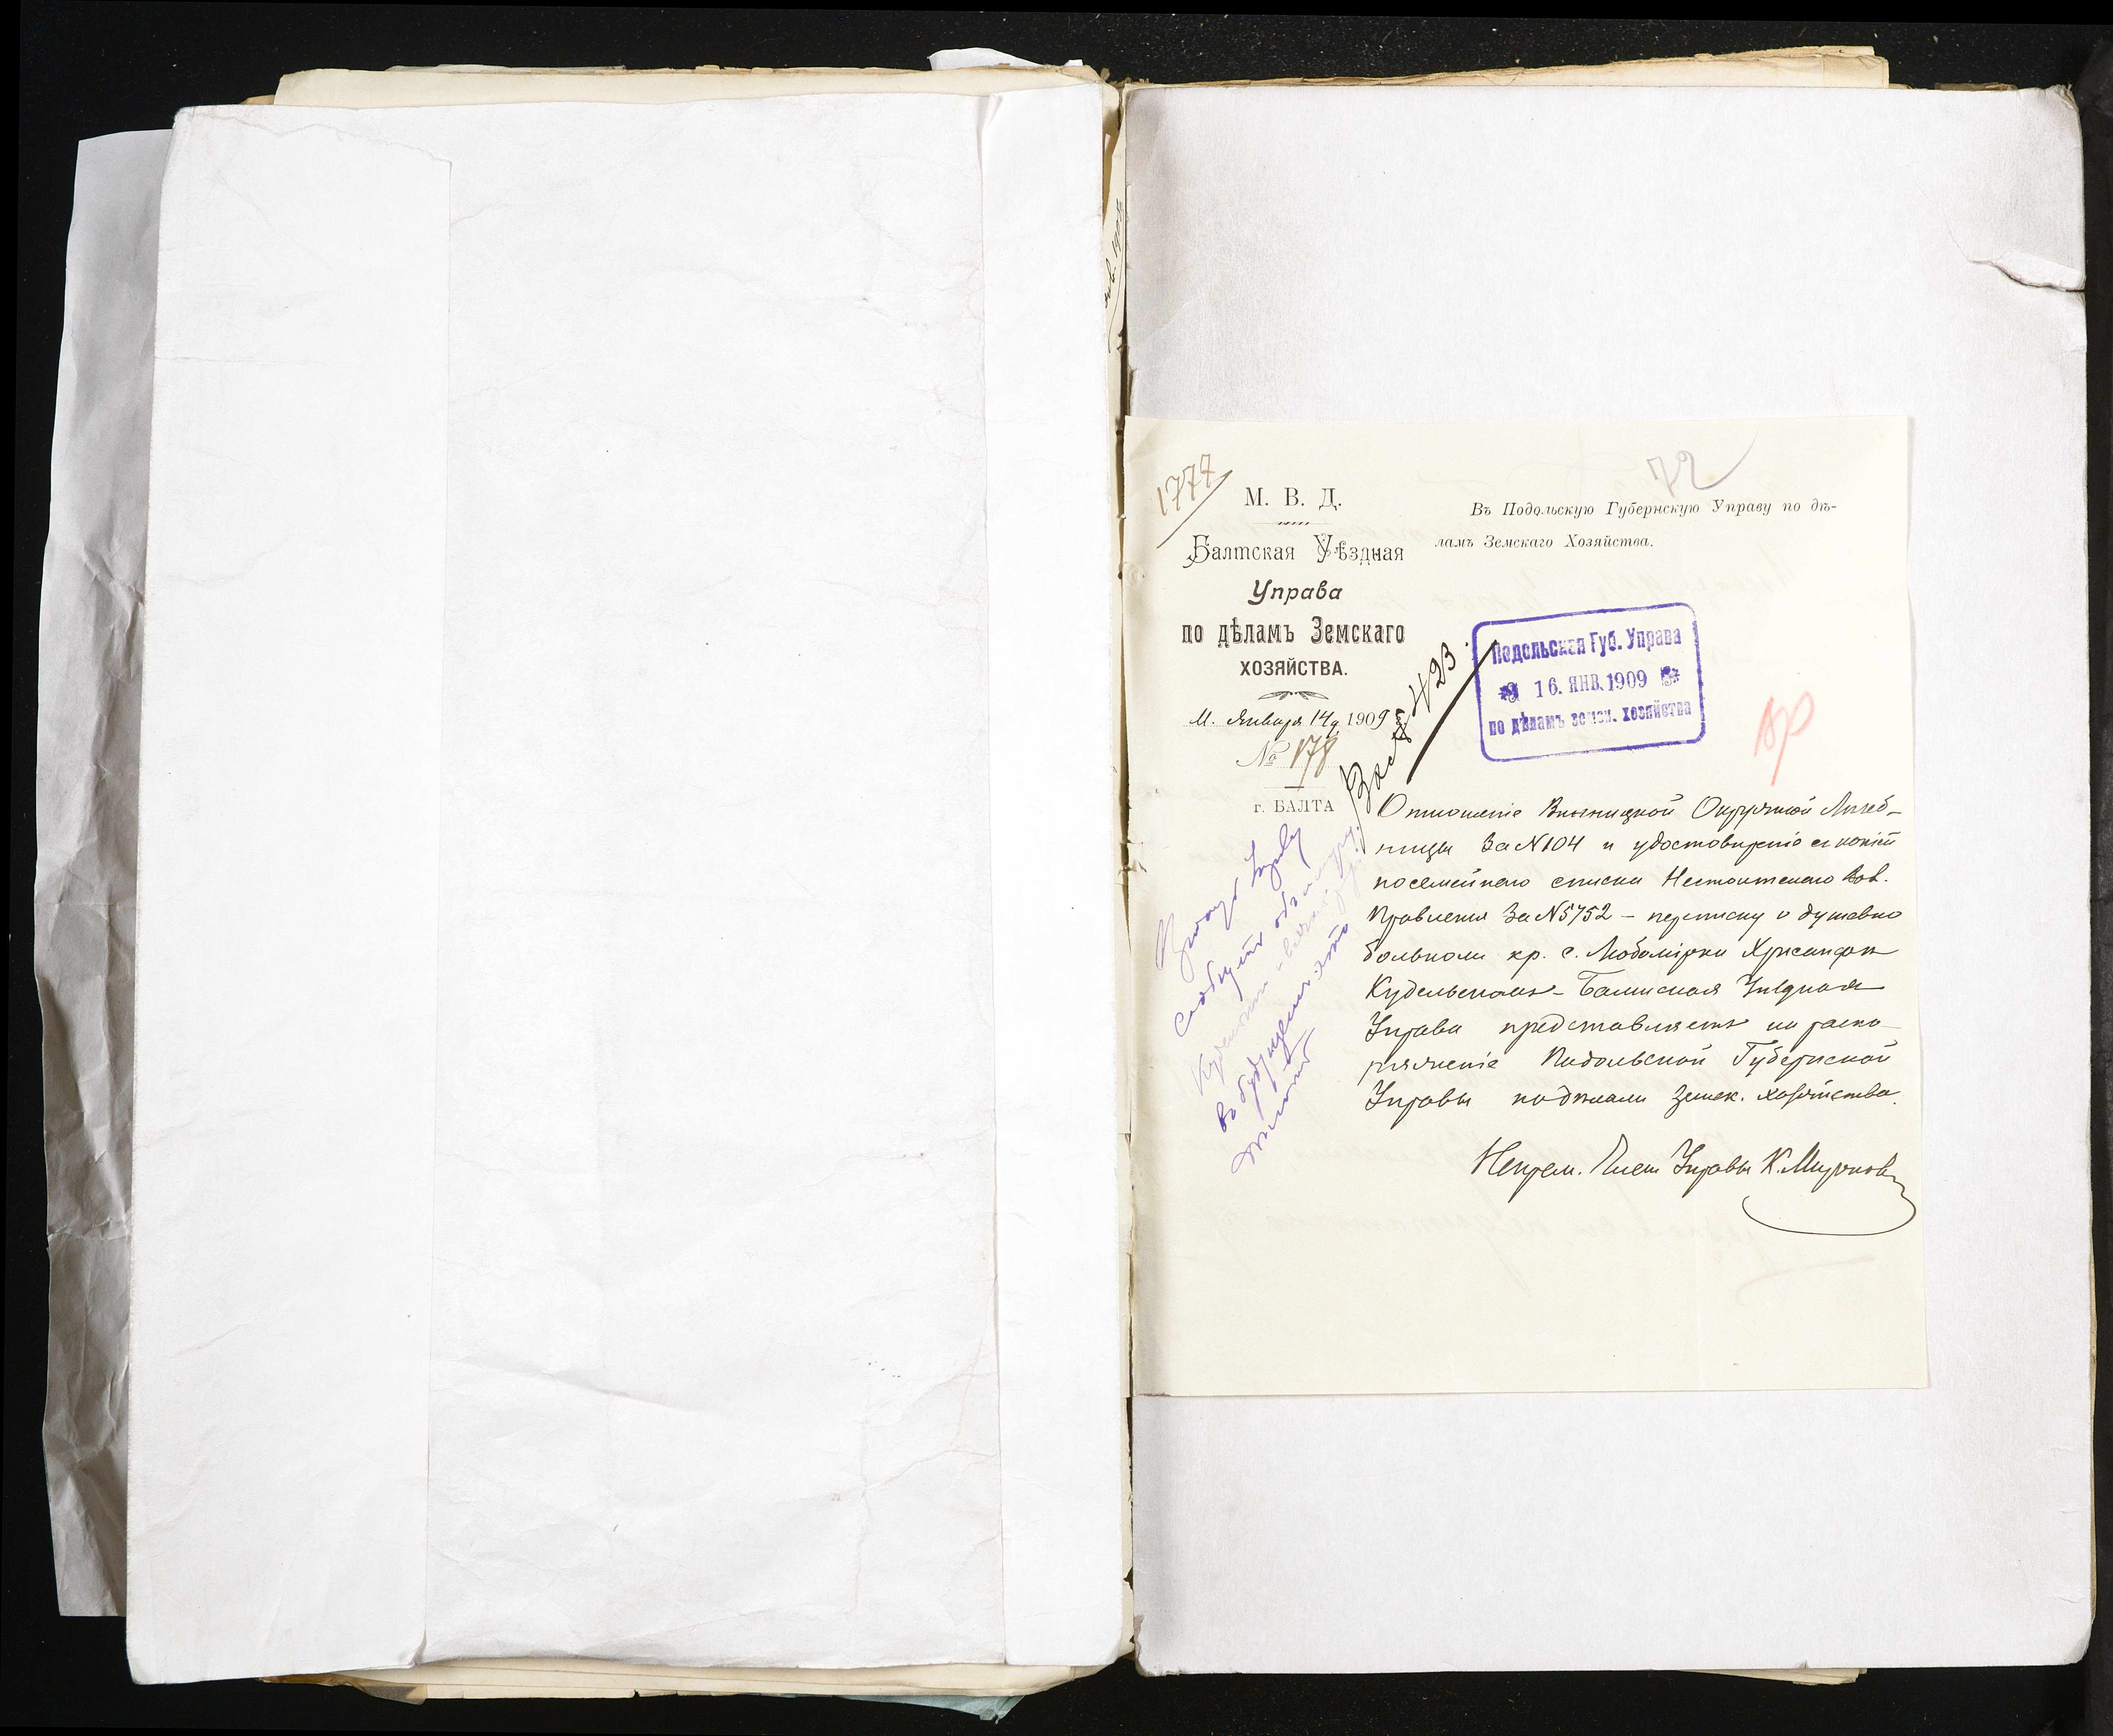 1777
72
М. В. Д.
Балтская Уѣздная
Управа
по дѣламъ Земскаго
ХОЗЯЙСТВА.
М. Января 14 д. 1909
№ 178
г. БАЛТА
Въ Подольскую Губернскую Управу по дѣ-
ламъ Земскаго Хозяйства.
423
Подольская Губ. Управа
16. ЯНВ. 1909
по дѣламъ земск. хозяйства
Отношеніе Винницкой Окружной Лечеб-
ницы За № 104 и удостовѣреніе съ копіей
посемейнаго списка Вол.
Правленія За № 5752 – переписку о душевно
больномъ кр. с. Любомірки Хрисанфѣ
Кудельскомъ – Балтская Уѣздная
Управа представляетъ на распо-
ряженіе Подольской Губернской
Управы по дѣламъ Земск. хозяйства.
Непрем. Членъ Управы К.
Управу
сообщить
въ будущемъ